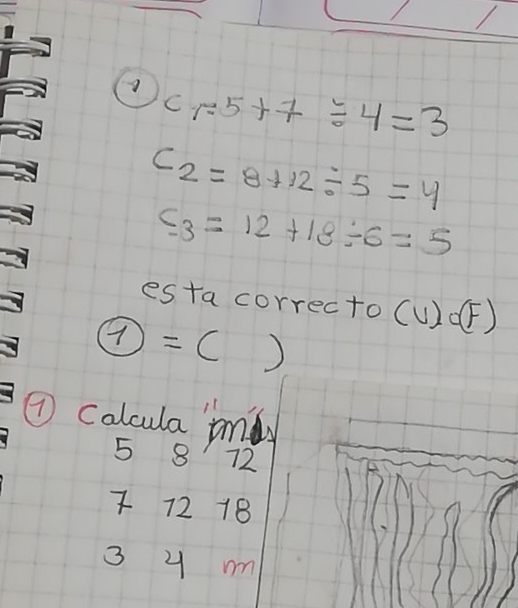 ① C₁=5+7 ÷4=3
C2 = 8+12÷5 = 4
C3 = 12+18÷6= 5
esta correcto (V) o (F)
① = ( )
① Calcula "m"
5 8 12
7 12 18
3 4 m